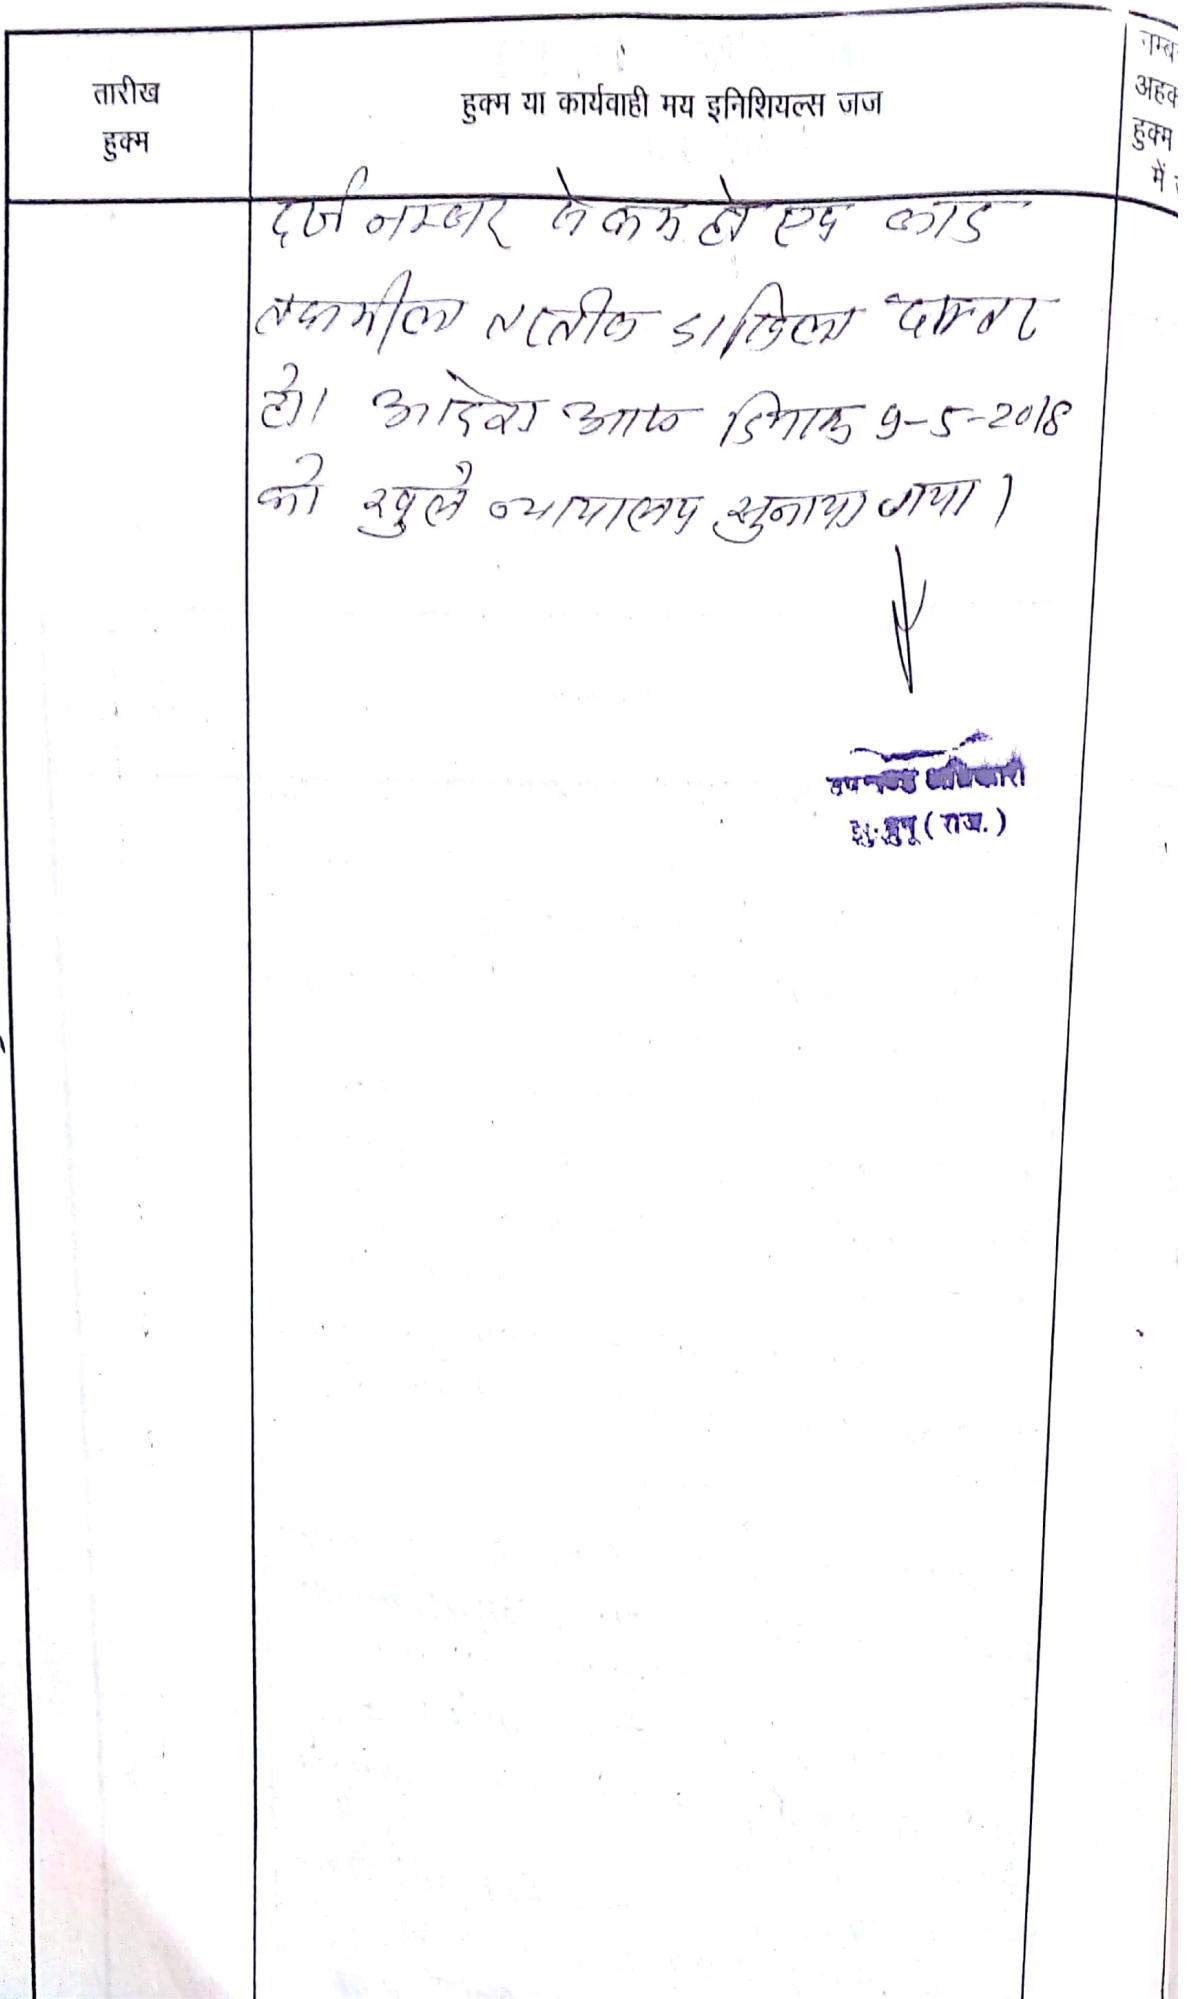 तारीख
हुक्म
हुक्म या कार्यवाही मय इनिशियल्स जज
हुक्म
में
दर्ज नम्बर से कम हो एवं बाद
तकमील तरतीब दाखिल दफ्तर
हो। आदेश आज दिनांक 9-5-2018
को खुले न्यायालय सुनाया गया।
उपखण्ड अधिकारी
झुन्झुनू (राज.)